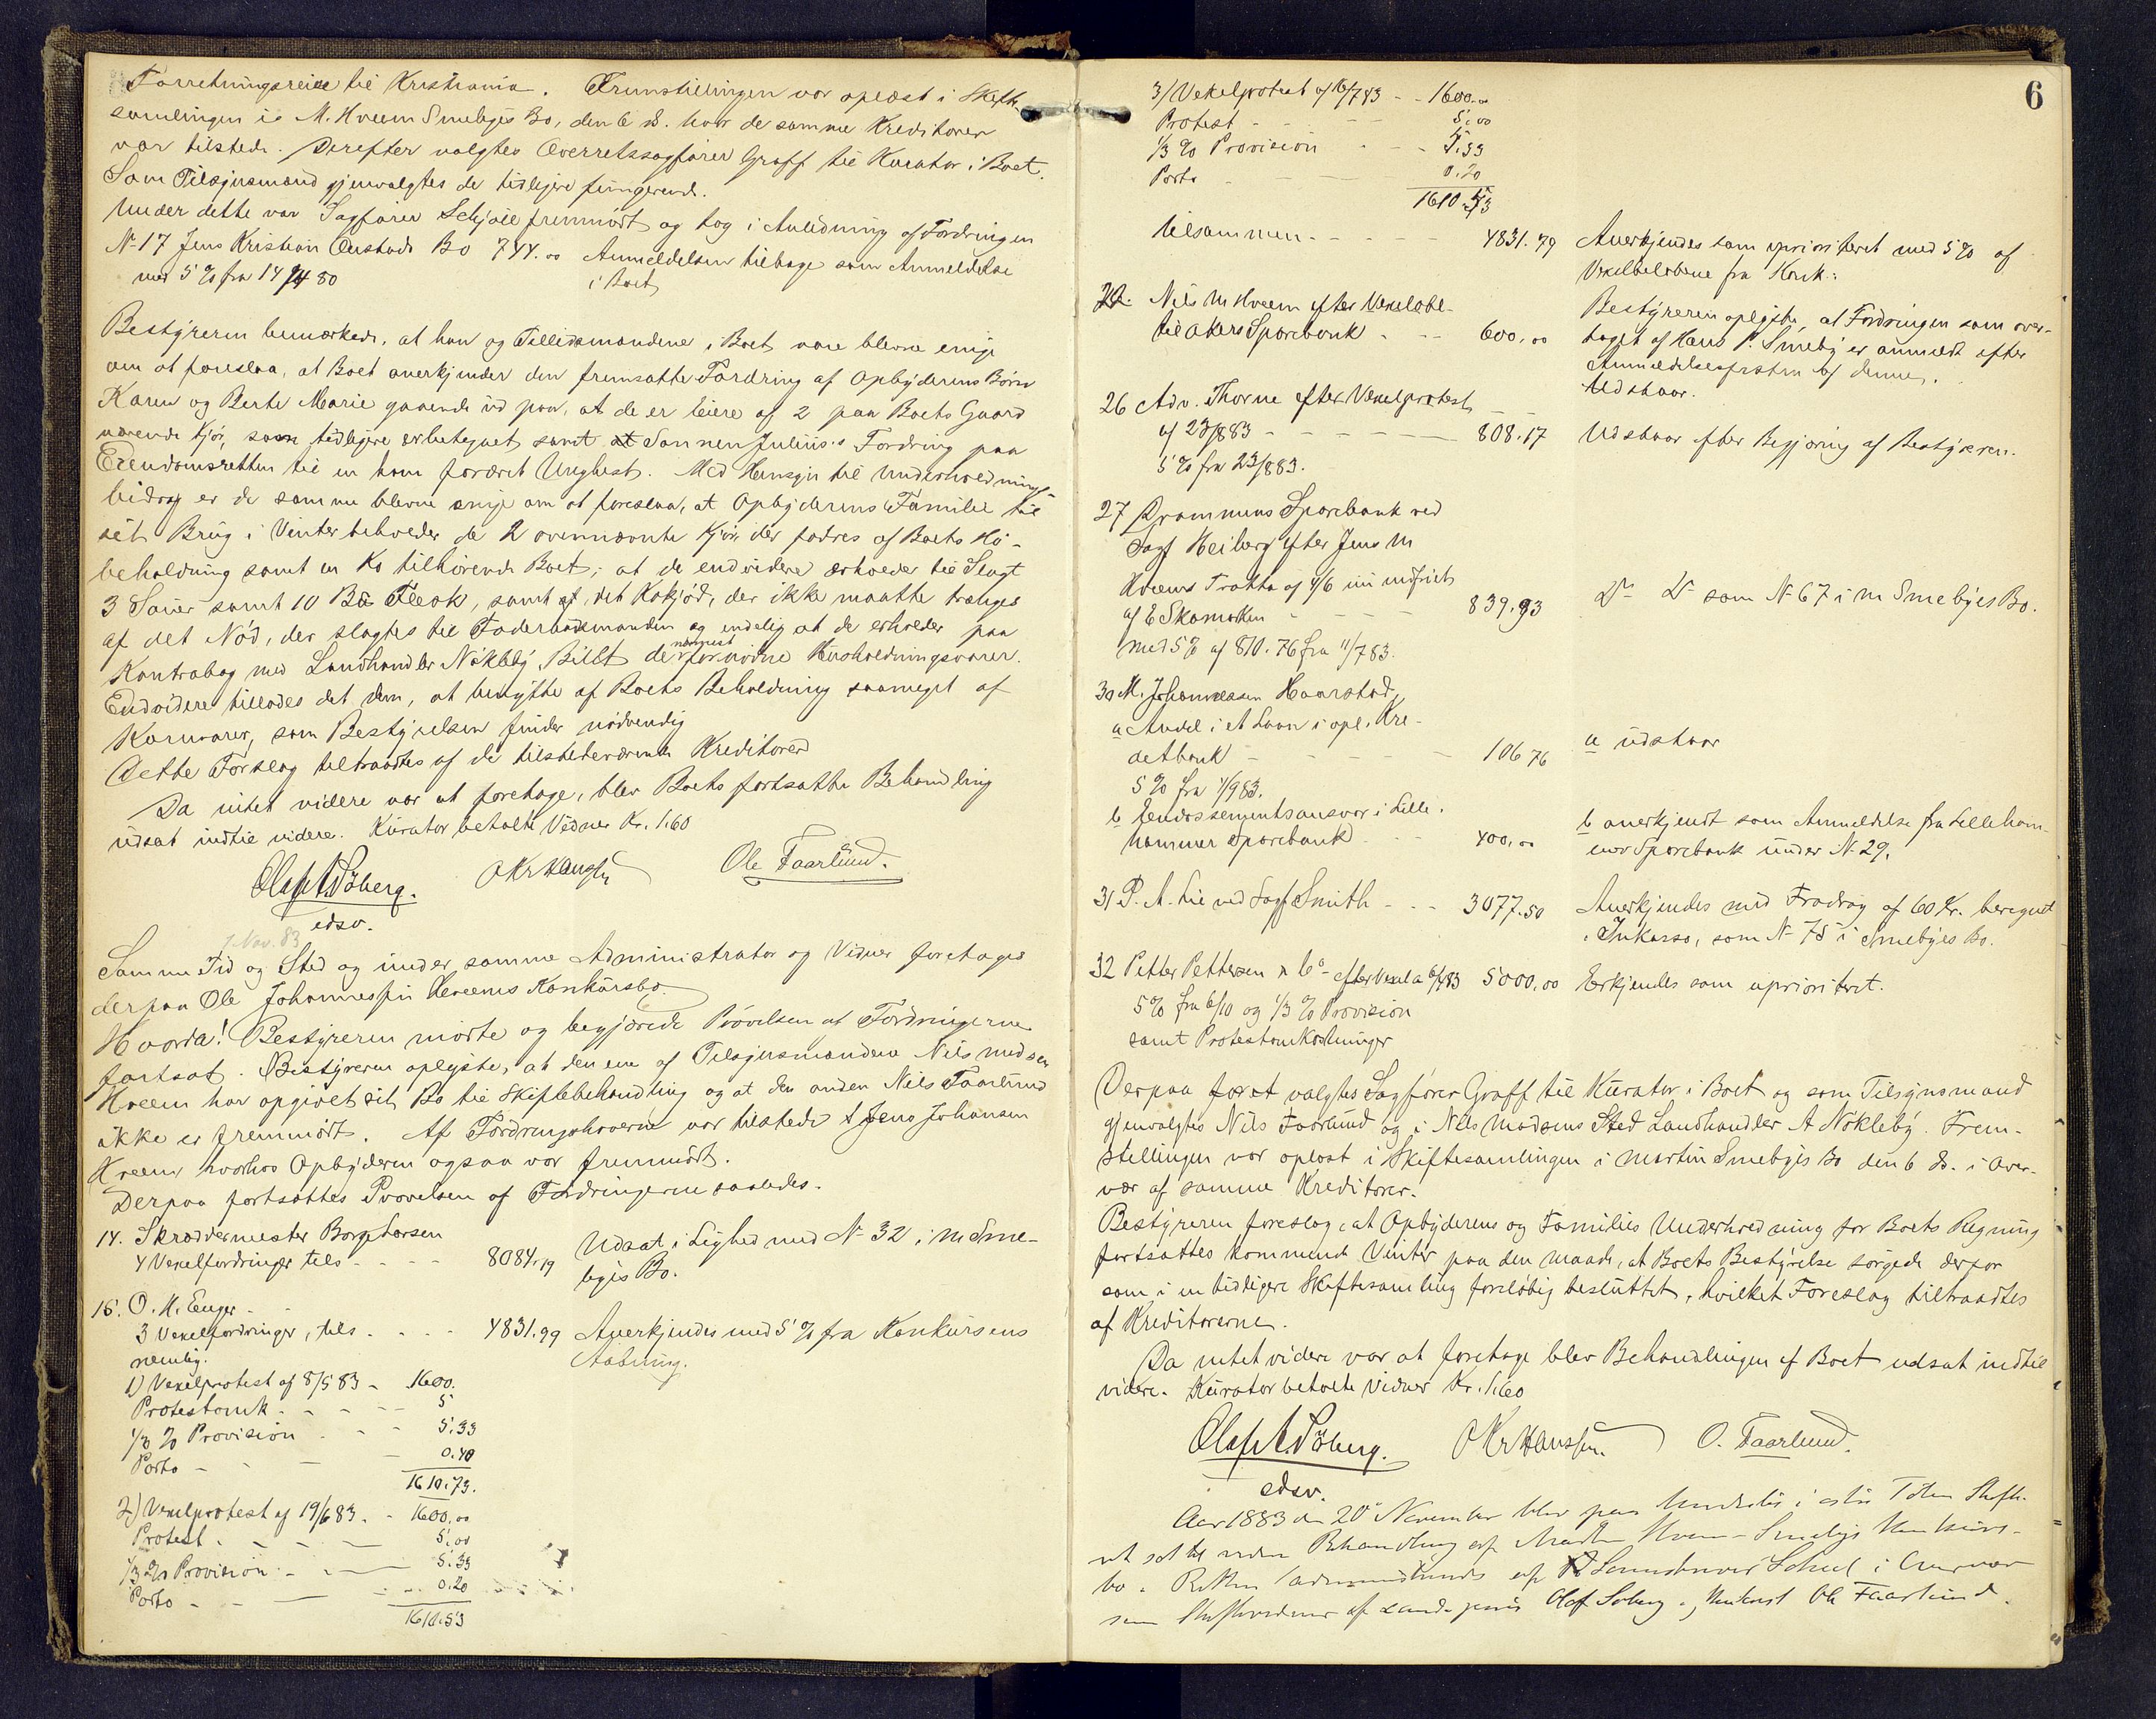 Forretningsreise til Kristiania. Fremstillingen var oplæst i Skifte-
samlingen i M. Hveem Smebyes Bo, den 6 ds. hvor de samme Kreditorer
var tilstede. Derefter valgtes Overretssagfører Graff til Kurator i Boet.
Som Tilsynsmænd gjenvalgtes de tidligere fungerende.
Under dette var Sagfører Schjøll fremmødt og tog i Anledning af Fordringen
No 17 Jens Kristian Bo 744.00 Anmeldelsen tilbage som Anmeldelse
med 5 % fra 14/4 80 i Boet
Bestyreren bemærkede, at han og Tillidsmændene i Boet vare blevne enige
om at foreslaa, at Boet anerkjender den fremsatte Fordring af Opbyderens Børn
Karen og Berte Marie gaaende ud paa, at de er Eiere af 2 paa Boets Gaard
værende Kjør, som tidligere erbetegnet samt at Sønnen Julius's Fordring paa
Eiendomsretten til en ham foræret Unghest. Med Hensyn til Underholdnings-
bidrag er de samme blevne enige om at foreslaa, at Opbyderens Familie til
sit Brug i Vinter beholder de 2 ovennævnte Kjør, der fodres af Boets Hø-
beholdning samt en Ko tilhørende Boet; at de endvidere erholder til Slagt
3 Sauer samt 10 Flesk, samt af det Kokjød, der ikke maatte trænges
af det Nød, der slagtes til Foderrøktsmanden og endelig at de erholder paa
Kontrabog med Landhandler Nøkleby, Billit de nærmest fornødne Husholdningsvarer.
Endvidere tillodes det dem, at benytte af Boets Beholdning saameget af
Kornvarer, som Bestyrelsen finder nødvendig
Dette Forslag tiltraadtes af de tilstedeværende Kreditorer
Da intet videre var at foretage, blev Boets fortsatte Behandling
udsat indtil videre. Kurator betalte Vidner Kr. 1.60
Olaf A Søberg. O Kr Hanssen Ole Faarlund.
edsv.
7 Nov. 83
Samme Tid og Sted og under samme Administrator og Vidner foretoges
derpaa Ole Johannessen Hveems Konkursbo.
Hvorda! Bestyreren mødte og begjærede Prøvelsen af Fordringerne
fortsat. Bestyreren oplyste, at den ene af Tilsynsmændene Nils Madsen
Hveem har opgivet sit Bo til Skiftebehandling og at den anden Nils Faarlund
ikke er fremmødt. Af Fordringshaverne var tilstede Jens Johansen
Hveem hvorhos Opbyderen ogsaa var fremmødt.
Derpaa fortsattes Prøvelsen af Fordringerne saaledes.
14. Skræddermester Borge Larsen
4 Vexelfordringer tils - - - - 8084.19 Udsat i Lighed med No 32 i M Sme-
byes Bo.
15. O. H. Enger -
3 Vexelfordringer, tils - - - - 4831.79 Anerkjendes med 5 % fra Konkursens
nemlig. Aabning.
1) Vexelprotest af 8/5 83 - 1600.
Protestomk - - - - 5
1/3 % Provision - - - 5.33
Porto - - - 0.40
1610.73.
2) Vexelprotest af 19/6 83. - 1600.00
Protest - - - 5.00
1/3 % Provision - - - 5.33
Porto - - - 0.20
1610.53
6
3) Vekelprotest af 16/7 83 - - 1600.00
Protest - - - 5.00
1/3 % Provision - - - 5.33
Porto - - - 0.20
1610.53
tilsammen - - - - 4831.79 Anerkjendes som uprioriteret med 5 % af
Vexelbeløbene fra Konk:
22. Nils M Hveem efter Vexelobl- Bestyreren oplyste, at Fordringen som over-
til Akers Sparebank - - - 600.00 taget af Hans P. Smeby er anmeldt efter
Anmeldelsesfristen af denne.
Udstaar.
26 Adv. Thorne efter Vexelprotest
af 23/8 83 - - - - - 808.17 Udstaar efter Begjæring af Bestyreren.
5 % fra 23/8 83.
27 Drammens Sparebank ved
Sagf Heiberg efter Jens M
Hveems Tratte af 4/6 uindfriet
af E Skamarken - - - 839.93 Do Do som No 67 i M Smebyes Bo.
med 5 % af 810.76 fra 11/7 83.
30 M. Johannessen Haarstad,
a Andel i et Laan i opl. Kre-
detbank - - - - - 106 76 a udstaar
5 % fra 1/9 83.
b Endossementsansvar i Lille.
hammer Sparebank - - 400.00 b anerkjendt som Anmeldelse fra Lilleham-
mer Sparebank under No 29.
31 P. A. Lie ved Sagf Smith - - - 3077.50 Anerkjendes med Fradrag af 60 Kr. beregnet
i Inkasso, som No 75 i Smebyes Bo.
32 Petter Pettersen & Co - efter Vexel a 6/7 83 5000.00 Erkjendes som uprioriteret.
5 % fra 6/10 og 1/3 % Provision
samt Protestomkostninger
Derpaa valgtes Sagfører Graff til Kurator i Boet og som Tilsynsmænd
gjenvalgtes Nils Faarlund og i Nils Madsens Sted Landhandler A Nøkleby. Frem-
stillingen var oplæst i Skiftesamlingen i Martin Smebyes Bo den 6 ds. i Over-
vær af samme Kreditorer.
Bestyreren foreslog, at Opbyderens og Families Underholdning for Boets Regning
fortsattes kommende Vinter paa den Maade, at Boets Bestyrelse sørgede derfor
som i en tidligere Skiftesamling foreløbig besluttet, hvilket Forslag tiltraadtes
af Kreditorerne.
Da intet videre var at foretage blev Behandlingen af Boet udsat indtil
videre. Kurator betalte Vidner Kr. 1.60
Olaf A Søberg. O Kr Hanssen O. Faarlund.
edsv.
Aar 1883 den 20de November blev paa i Toten Skifte-
ret sat til videre Behandling af Martin Hveem-Smebys Konkurs-
bo. Retten administreredes af Scheel i Overvær
som Skiftevidner af Olaf Søberg og Ole Faarlund.